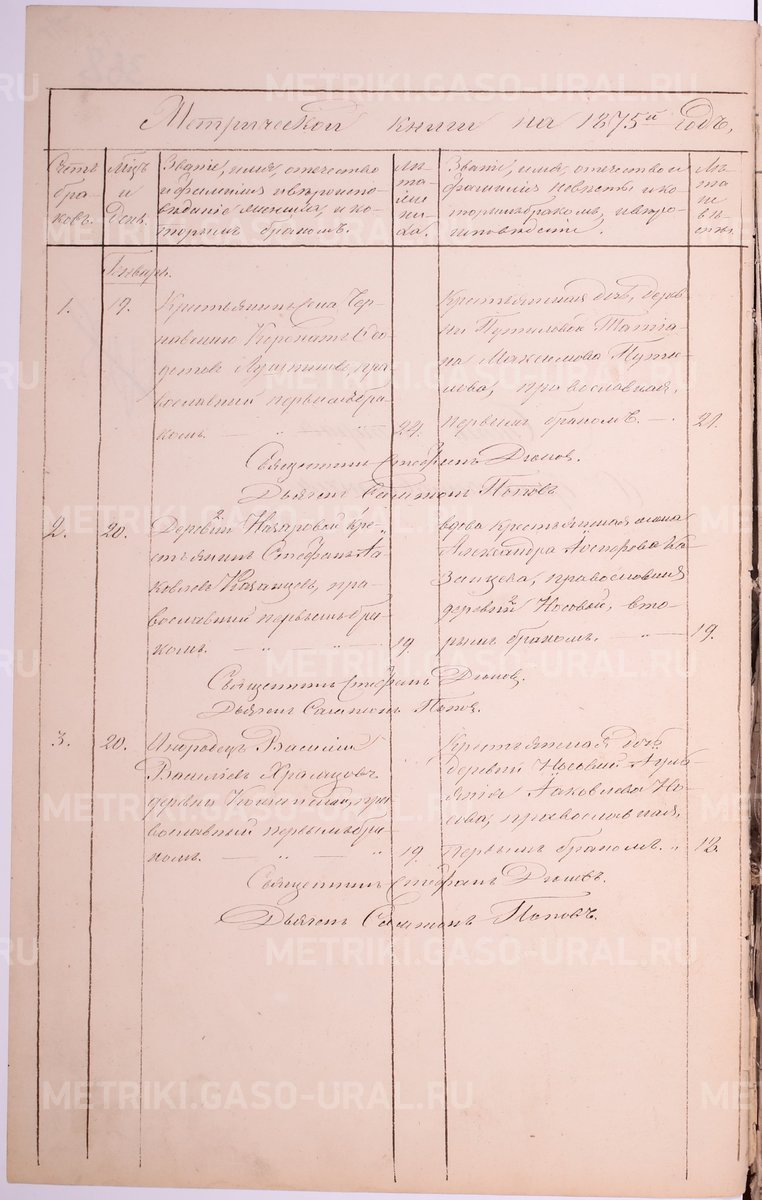 METRIKI.GASO-URAL.RU
Метрической книги на 1875й Годъ.
Счетъ бра-ковъ.
Мѣцъ и День
Званіе, имя, отечество
и фамилія
вѣданіе жениха, и ко-
торымъ бракомъ.
Лѣ-та
жени-
ха.
Званіе, имя, отечество и
фамилія невѣсты и ко-
торымъ бракомъ, и вѣро-
исповѣданіе.
Лѣ-
та
не
вѣ-
сты.
Январь.
1. 19. Крестьянинъ села Чер-
Лущиковъ, пра-
вославный первымъ бра-
комъ. 24.
Крестьянская дочь, дерев-
ни Путиловой Татіа-
на Максимова Пути-
лова, православная,
первымъ бракомъ. 21.
Священникъ Стефанъ
Дьячекъ Сампсонъ Поповъ
2. 20. Деревни Назаровой кре-
стьянинъ Стефанъ Іа-
ковлевъ Казанцевъ, пра-
вославный первымъ бра-
комъ. 19.
вдова крестьянская жена
Александра Ка-
занцева, православная
деревни Носовой, вто-
рымъ бракомъ. 19.
Священникъ Стефанъ
Дьячекъ Сампсонъ Поповъ.
3. 20. Инородецъ Василій
Васильевъ
деревни пра-
вославный первымъ бра-
комъ. 19.
Крестьянская дочь
деревни Носовой
Іаковлева Но-
сова, православная,
первымъ бракомъ.
Священникъ Стефанъ
Дьячекъ Сампсонъ Поповъ.